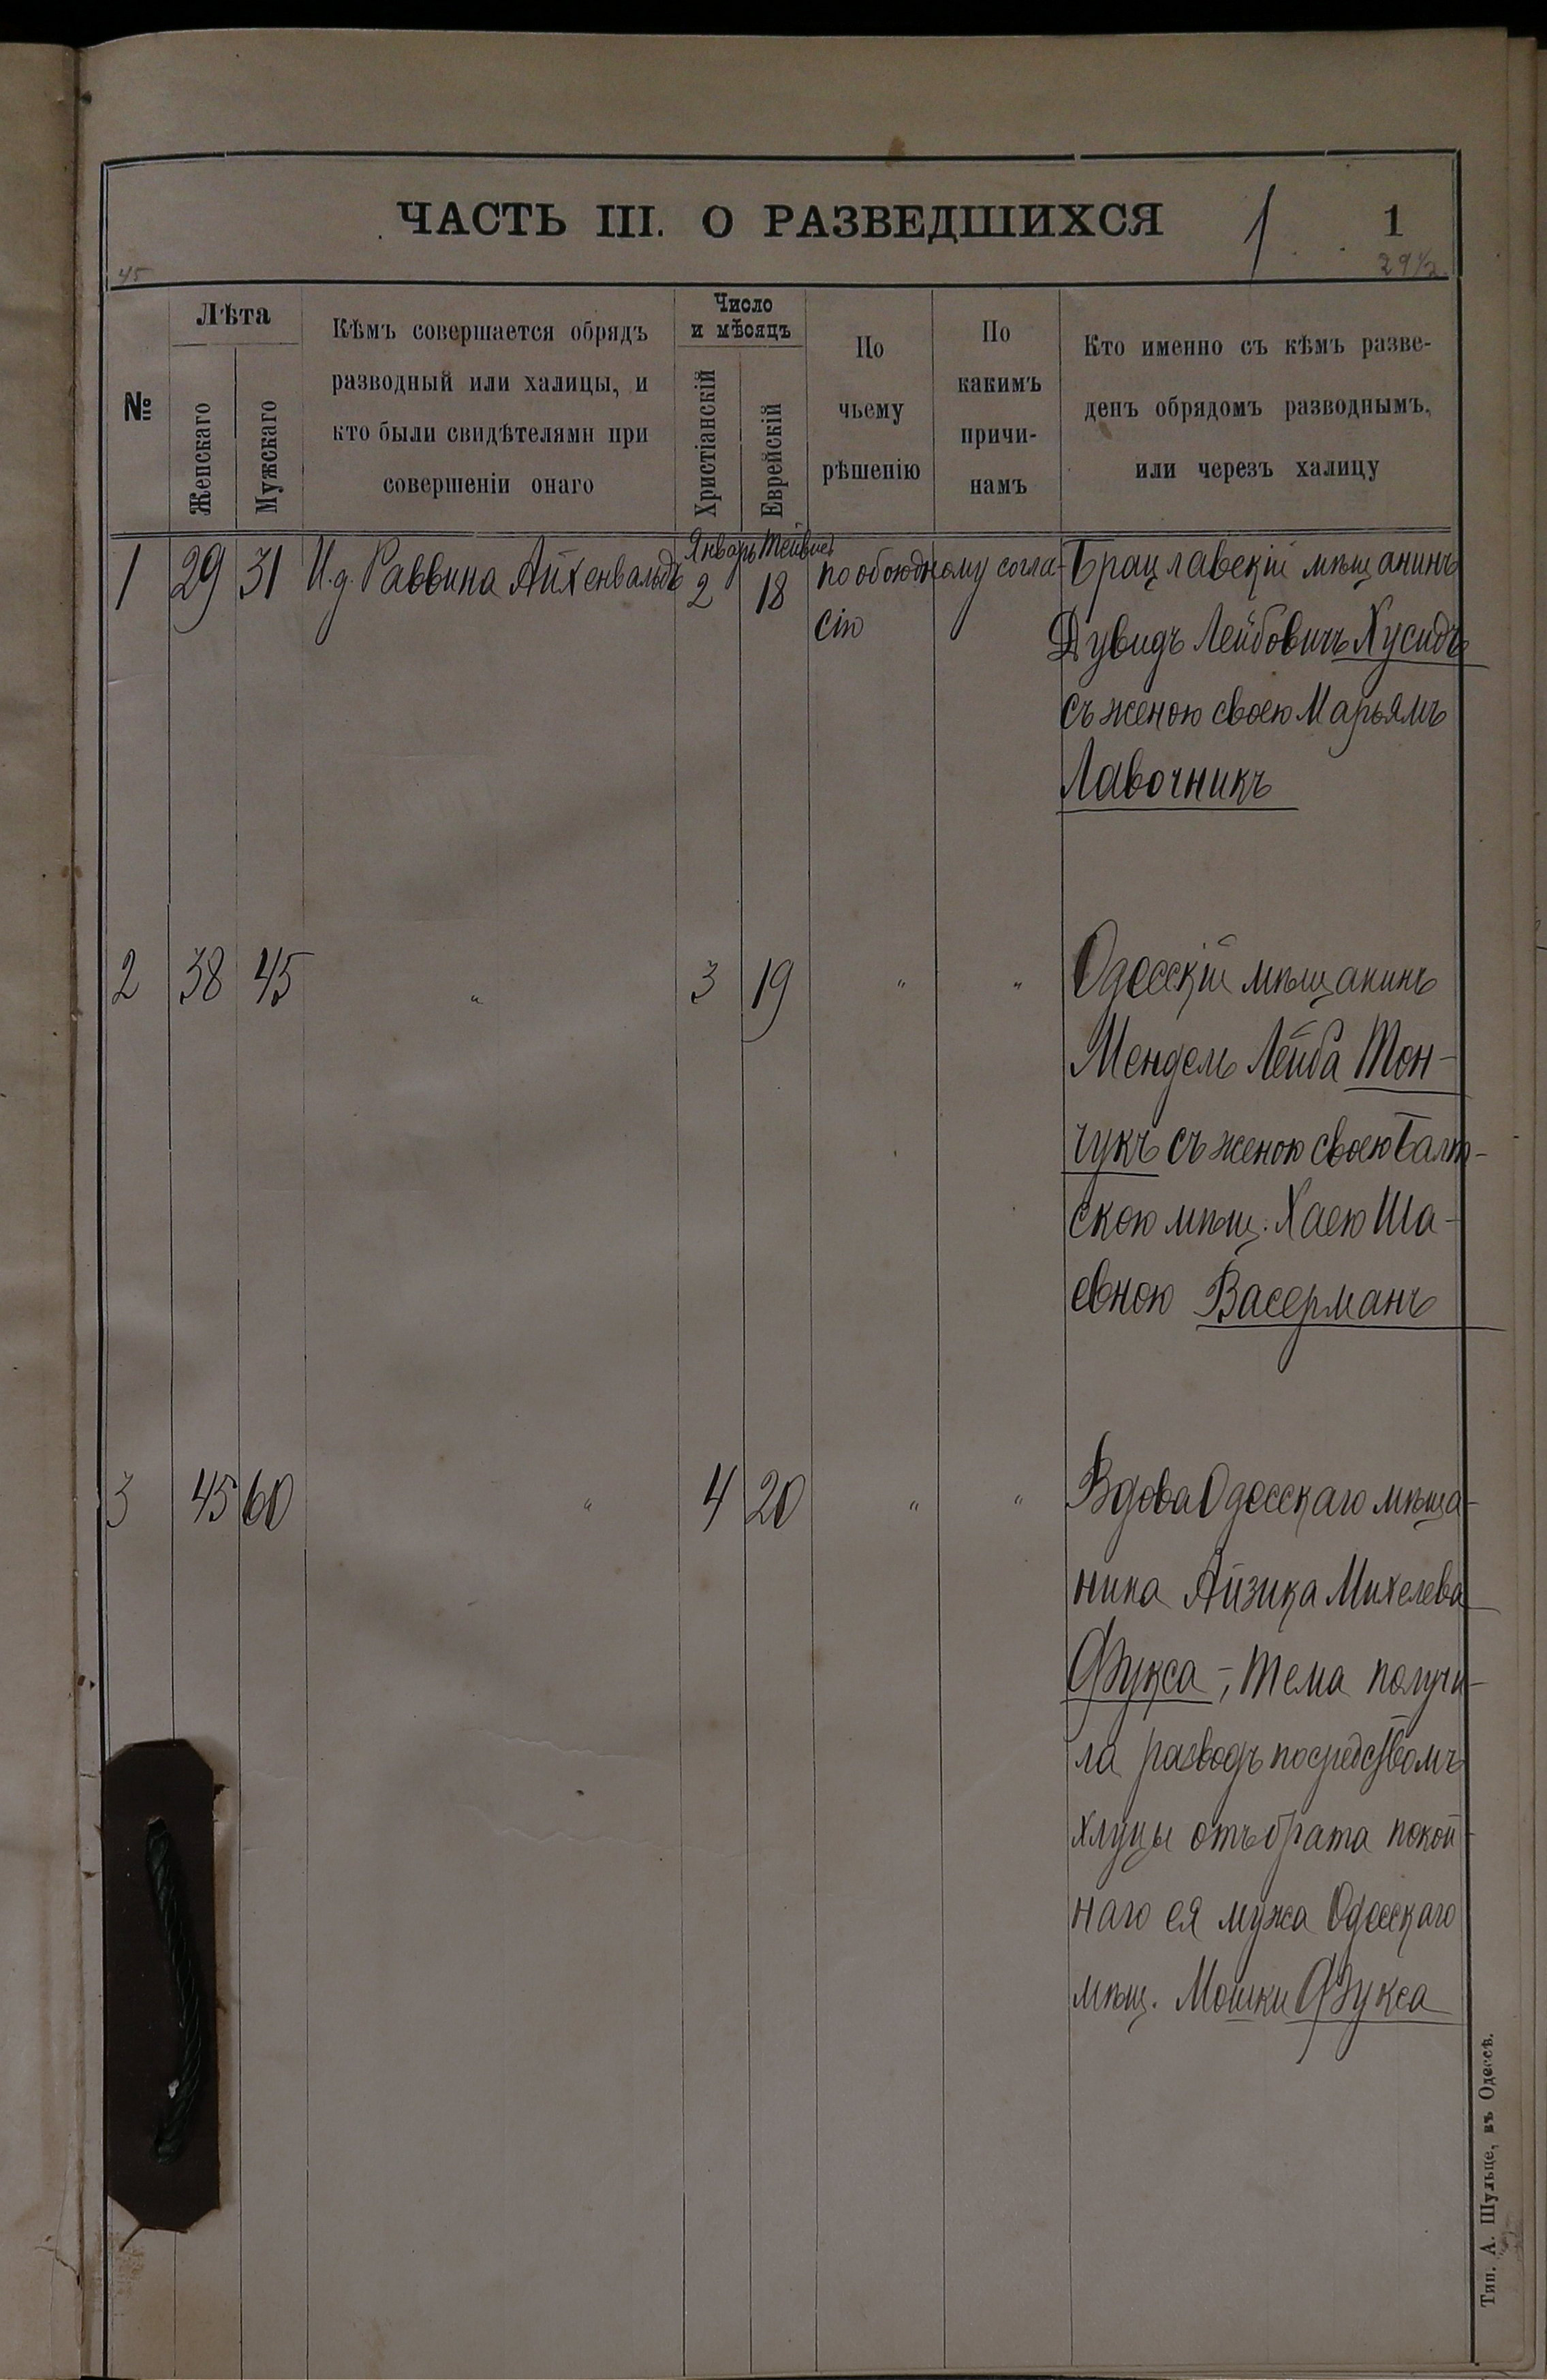 ЧАСТЬ III. О РАЗВЕДШИХСЯ
1
1
29½
45
№
Лѣта
Женскаго
Мужскаго
Кѣмъ совершается обрядъ
разводный или халицы, и
кто были свидѣтелями при
совершеніи онаго
Число
и мѣсяцъ
Христіанскій
Еврейскій
По
чьему
рѣшенію
По
какимъ
причи-
намъ
Кто именно съ кѣмъ разве-
денъ обрядомъ разводнымъ,
или черезъ халицу
Январь Тейвисъ
1 29 31 И.д. Раввина Айхенвальдъ 2 18 по обоюдному согла- Брацлавскій мѣщанинъ
сію
Дувидъ Лейбовичъ Хусидъ
съ женою своею Марьямъ
Лавочникъ
2 38 45 " 3 19 " " Одесскій мѣщанинъ
Мендель Лейба Тон-
чукъ съ женою своею Балт-
скою мѣщ. Хаею Ша-
евною Васерманъ
3 45 60 " 4 20 " " Вдова Одесскаго мѣща-
нина Айзика Михелева
Фукса-, Тема получи-
ла разводъ посредствомъ
хлуцы отъ брата покой-
наго ея мужа Одесскаго
мѣщ. Мошки Фукса
Тип. А. Шульце, въ Одессѣ.